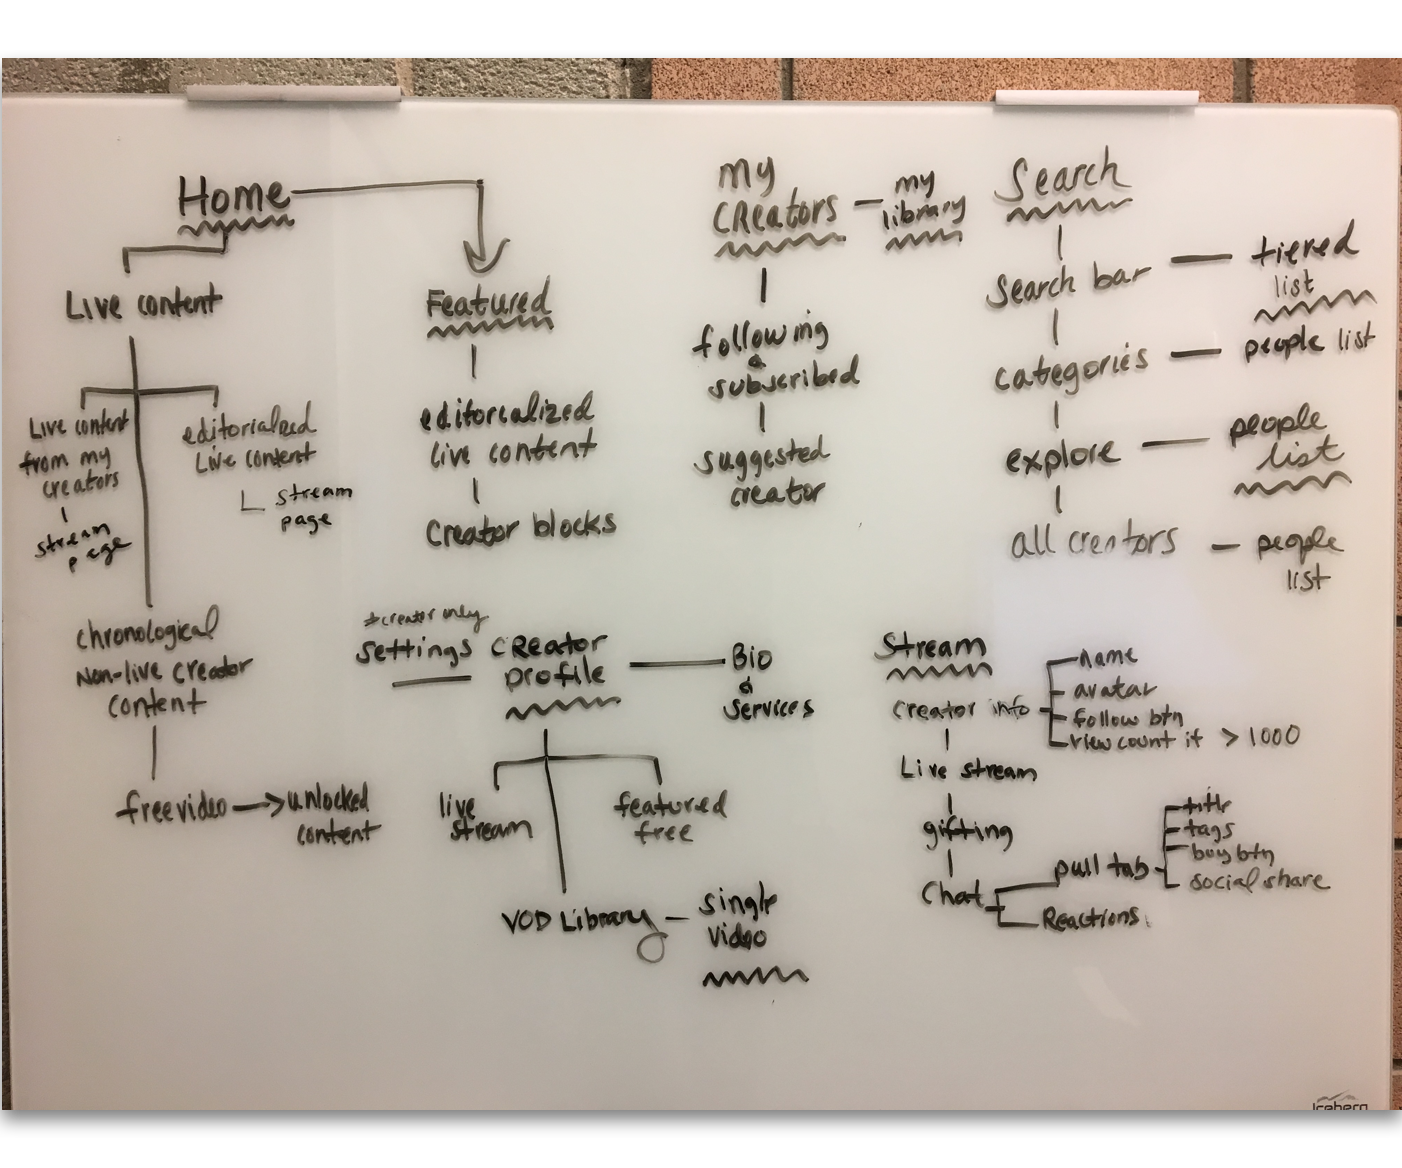 Home
Live content
Live content
from my
creators
stream
page
editorialized
Live content
stream
page
chronological
Non-live creator
content
free video
unlocked
content
Featured
editorialized
live content
Creator blocks
my
CREATORS
my
library
following
&
subscribed
suggested
creator
Search
Search bar
tiered
list
categories
people list
explore
people
list
all creators
people
list
*creator only
settings
CREator
profile
Bio
&
services
live
stream
featured
free
VOD Library
single
video
Stream
creator info
name
avatar
follow btn
view count if > 1000
Live stream
gifting
Chat
pull tab
title
tags
buy btn
social share
Reactions
Iceberg